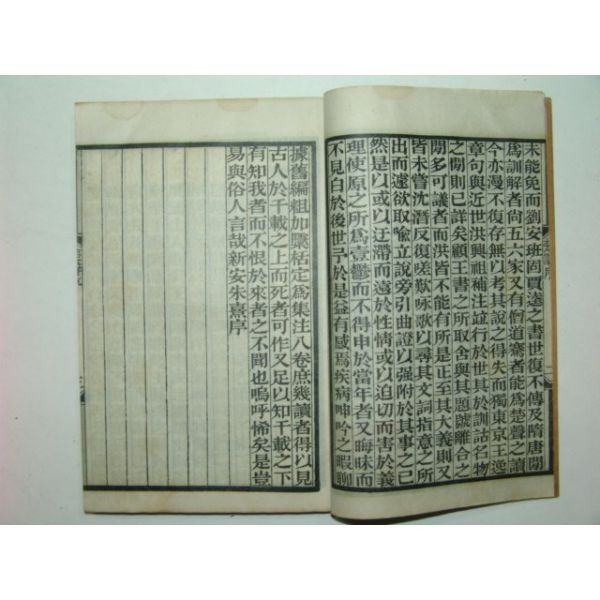 未能免而劉安班固賈逵之書世復不傳及隋唐閒
爲訓解者尙五六家又有僧道騫者能爲楚聲之讀
今亦漫不復存無以考其說之得失而獨東京王逸
章句與近世洪興祖補注竝行於世其於訓詁名物
之閒則已詳矣顧王書之所取舍與其題號離合之
閒多可議者而洪皆不能有所是正至其大義則又
皆未嘗沈潛反復嗟歎咏歌以尋其文詞指意之所
出而遽欲取喻立說旁引曲證以强附於其事之已
然是以或以迂滯而遠於性情或以迫切而害於義
理使原之所爲壹鬱而不得申於當年者又晦昧而
不見白於後世予於是益有感焉疾病呻吟之暇聊
據舊編粗加檃栝定爲集注八卷庶幾讀者得以見
古人於千載之上而死者可作又足以知千載之下
有知我者而不恨於來者之不聞也嗚呼悕矣是豈
易與俗人言哉新安朱熹序